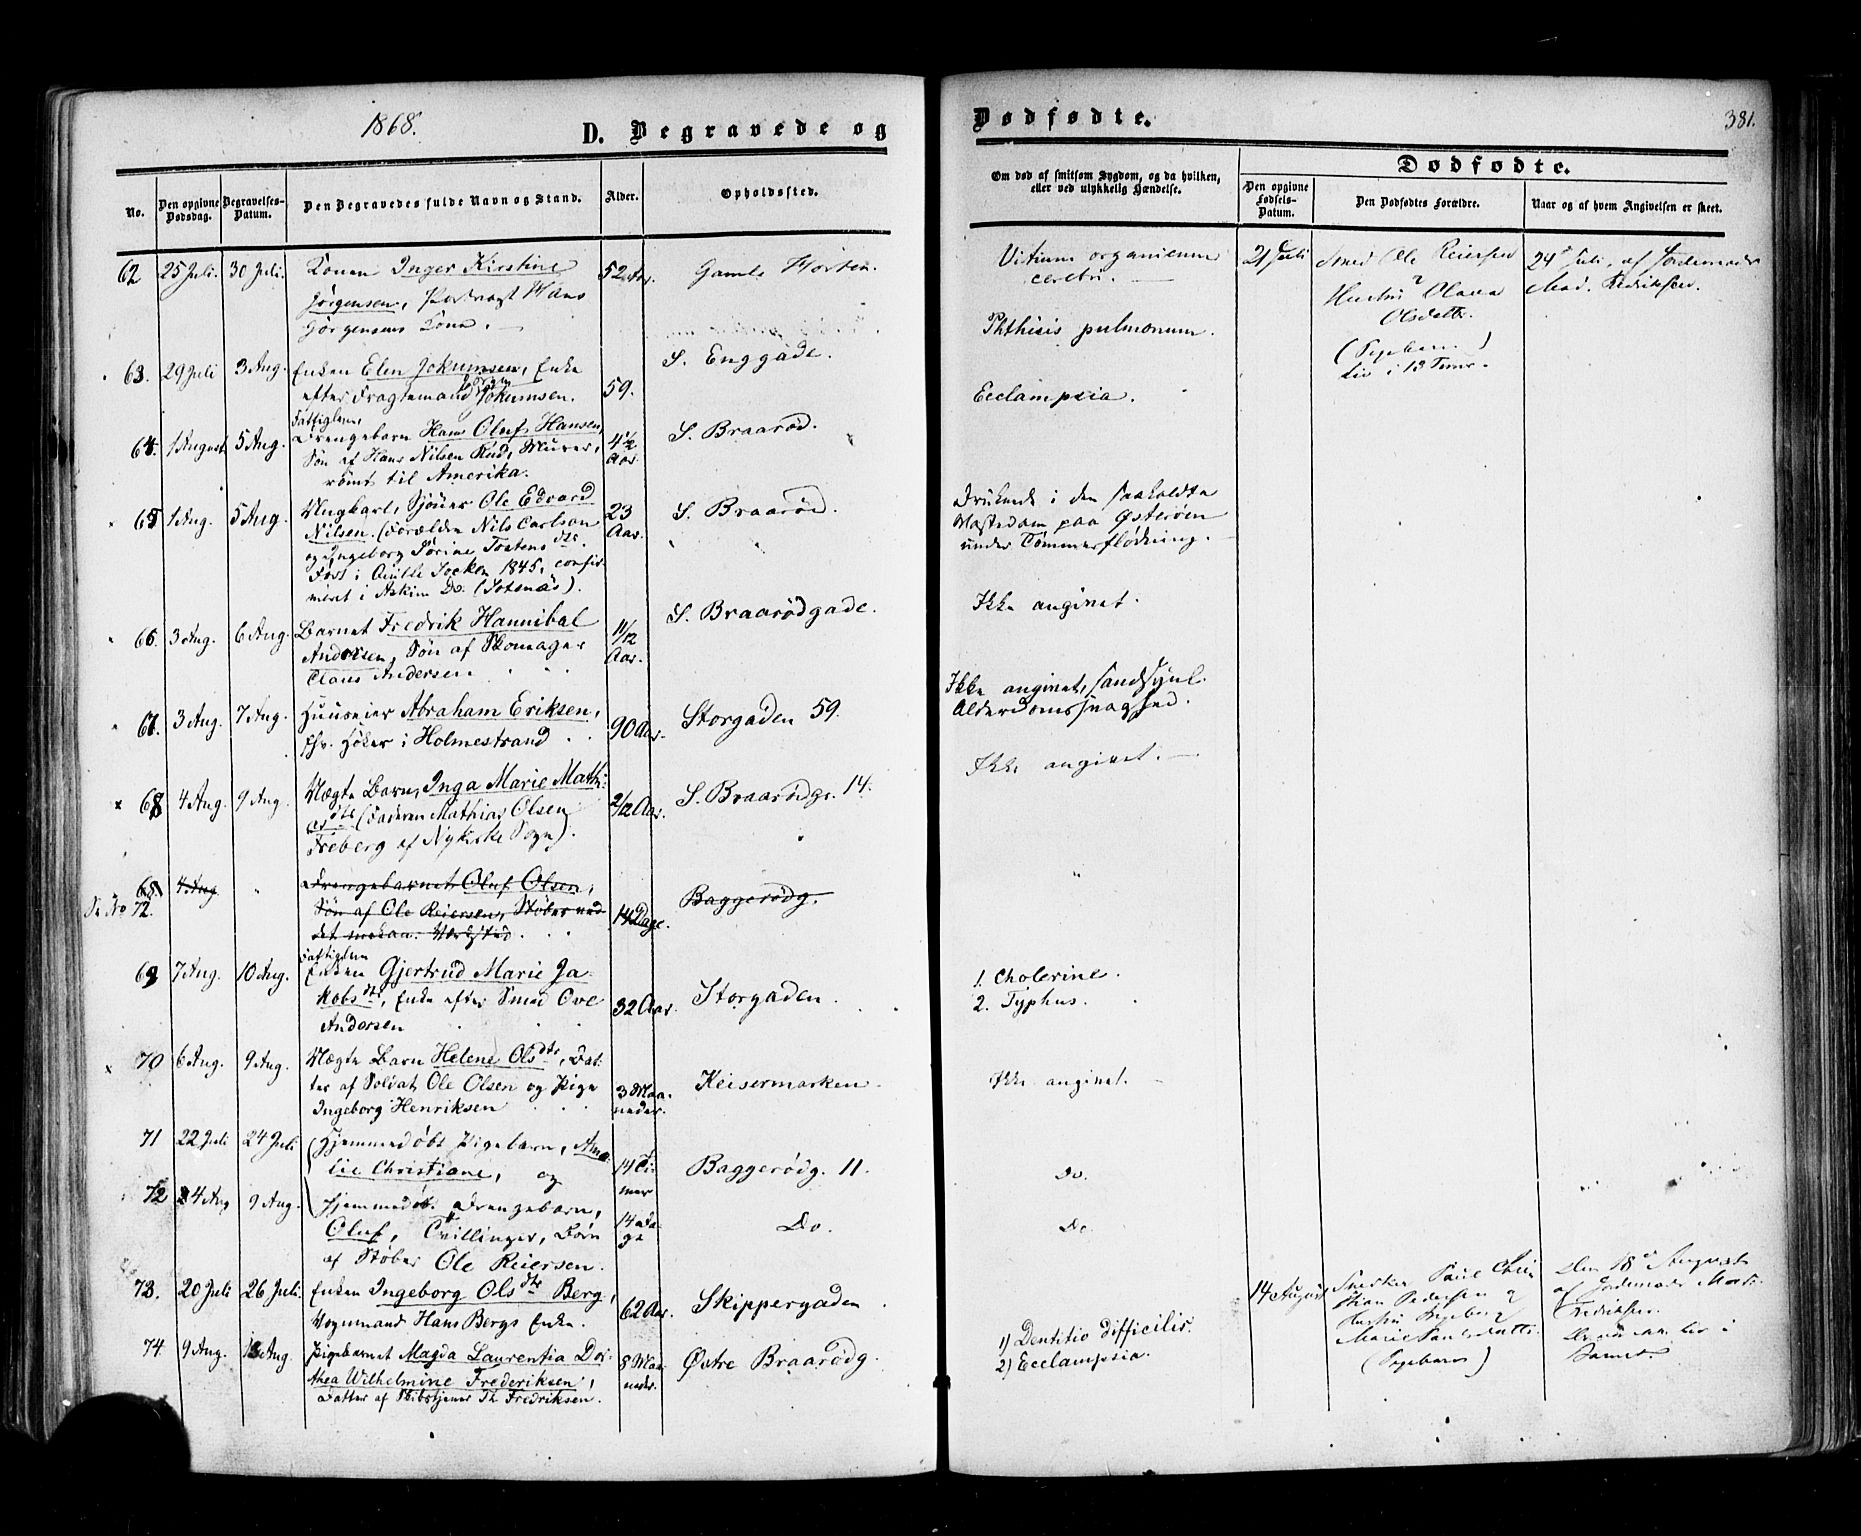 1868.
D. Begravede og
No.
Den opgivne Dødsdag.
Begravelses-Datum.
Den Begravedes fulde Navn og Stand.
Alder.
Opholdssted.
62 25 Juli. 30 Juli. Konen Inger Kirstine 52 Aar. Gamle Horten.
Jörgensen, Hans
Jörgensens Kone.
63. 29 Juli 3 Aug. Enken Elen Jokumsen, Enke 59. S. Enggade.
efter Fragtemand Jokumsen.
Fattiglem
64. 1 August 5 Aug. Drengebarn Hans Oluf Hansen, 4 1/2 Aar. S. Braarød.
Søn af Hans Nilsen Rud, Murer,
römt til Amerika.
65 1 Aug. 5 Aug. Ungkarl, Sjöuer Ole Edvard 23 Aar. S. Braarød.
Nilsen. (Forældre Nils Carlson
og Ingeborg Sörine Tostensdtr.
Föst i Qville Socken 1845, confir-
meret i Askim Do. (Sotenäs).
66. 3 Aug. 6 Aug. Barnet Fredrik Hannibal 11/12 Aar. S. Braarødgade.
Andersen, Søn af Skomager
Claus Andersen
67. 3 Aug. 7 Aug. Huuseier Abraham Eriksen, 90 Aar. Storgaden 59.
fhv. Høker i Holmestrand
68 4 Aug. 9 Aug. Uægte Barn, Inga Marie Mathi- 2/12 Aar. S. Braarødg. 14.
asdtr (Faderen Mathias Olsen
Freberg af Nykirke Sogn).
68 4 Aug " Drengebarnet Oluf Olsen, 14 Dage. Baggerødg.
Se No 72. Søn af Ole Reiersen, Støber ved
det mekan. Værksted
Fattiglem
69 7 Aug. 10 Aug. Enken Gjertrud Marie Ja- 32 Aar. Storgaden.
kobsdtr, Enke efter Smed Ove
Andorsen
70 6 Aug. 9 Aug. Uægte Barn Helene Olsdtr, Dat- 3 Maa- neder. Keisermarken.
ter af Soldat Ole Olsen og Pige
Ingeborg Henriksen
71 22 Juli 24 Juli (Hjemmedøbt Pigebarn, Ama- 14 Ti- mer Baggerødg. 11.
lie Christiane, og
72 4 Aug 9 Aug. Hjemmedøb. Drengebarn, 14 Da- ge Do.
Oluf, Tvillinger, Børn
af Støber Ole Reiersen.
73. 20 Juli 26 Juli. Enken Ingeborg Olsdtr Berg, 62 Aar. Skippergaden.
Vognmand Hans Bergs Enke.
74 9 Aug. 13 Aug. Pigebarnet Magda Laurentia Dor- 8 Maa- neder. Østre Braarødg.
thea Wilhelmine Frederiksen,
Datter af Skibstjener Th. Fredriksen.
Dødfødte.
381.
Om død af smitsom Sygdom, og da hvilken, eller ved ulykkelig Hændelse.
Dødfødte.
Den opgivne Fødsels-Datum.
Den Dødfødtes Forældre.
Naar og af hvem Angivelsen er skeet.
Vitium organicum
cerebri.
21 Juli Smed Ole Reiersen
Hustru Olava
Olsdatt.
(Pigebarn)
Liv i 13 Timer.
24de Juli, af Jordemoder
Mad. Fredriksen.
Phthisis pulmonum.
Ecclampsia.
Druknede i den saakaldte
Mastedam paa Østerøen
under Tømmerflødning.
Ikke angivet.
Ikke angivet, sandsynl.
Alderdomssvaghed.
Ikke angivet.
"
1. Cholerine.
2. Typhus.
Ikke angivet.
Do.
Do.
1) Dentitio difficilis.
2) Ecclampsia.
14 August Snekker Paul Chri-
stian Pedersen og
Hustru Ingeborg
Marie Paulsdatter.
(Pigebarn)
Den 18de August
af Jordemoder Mad.
Fredriksen.
Barnet.